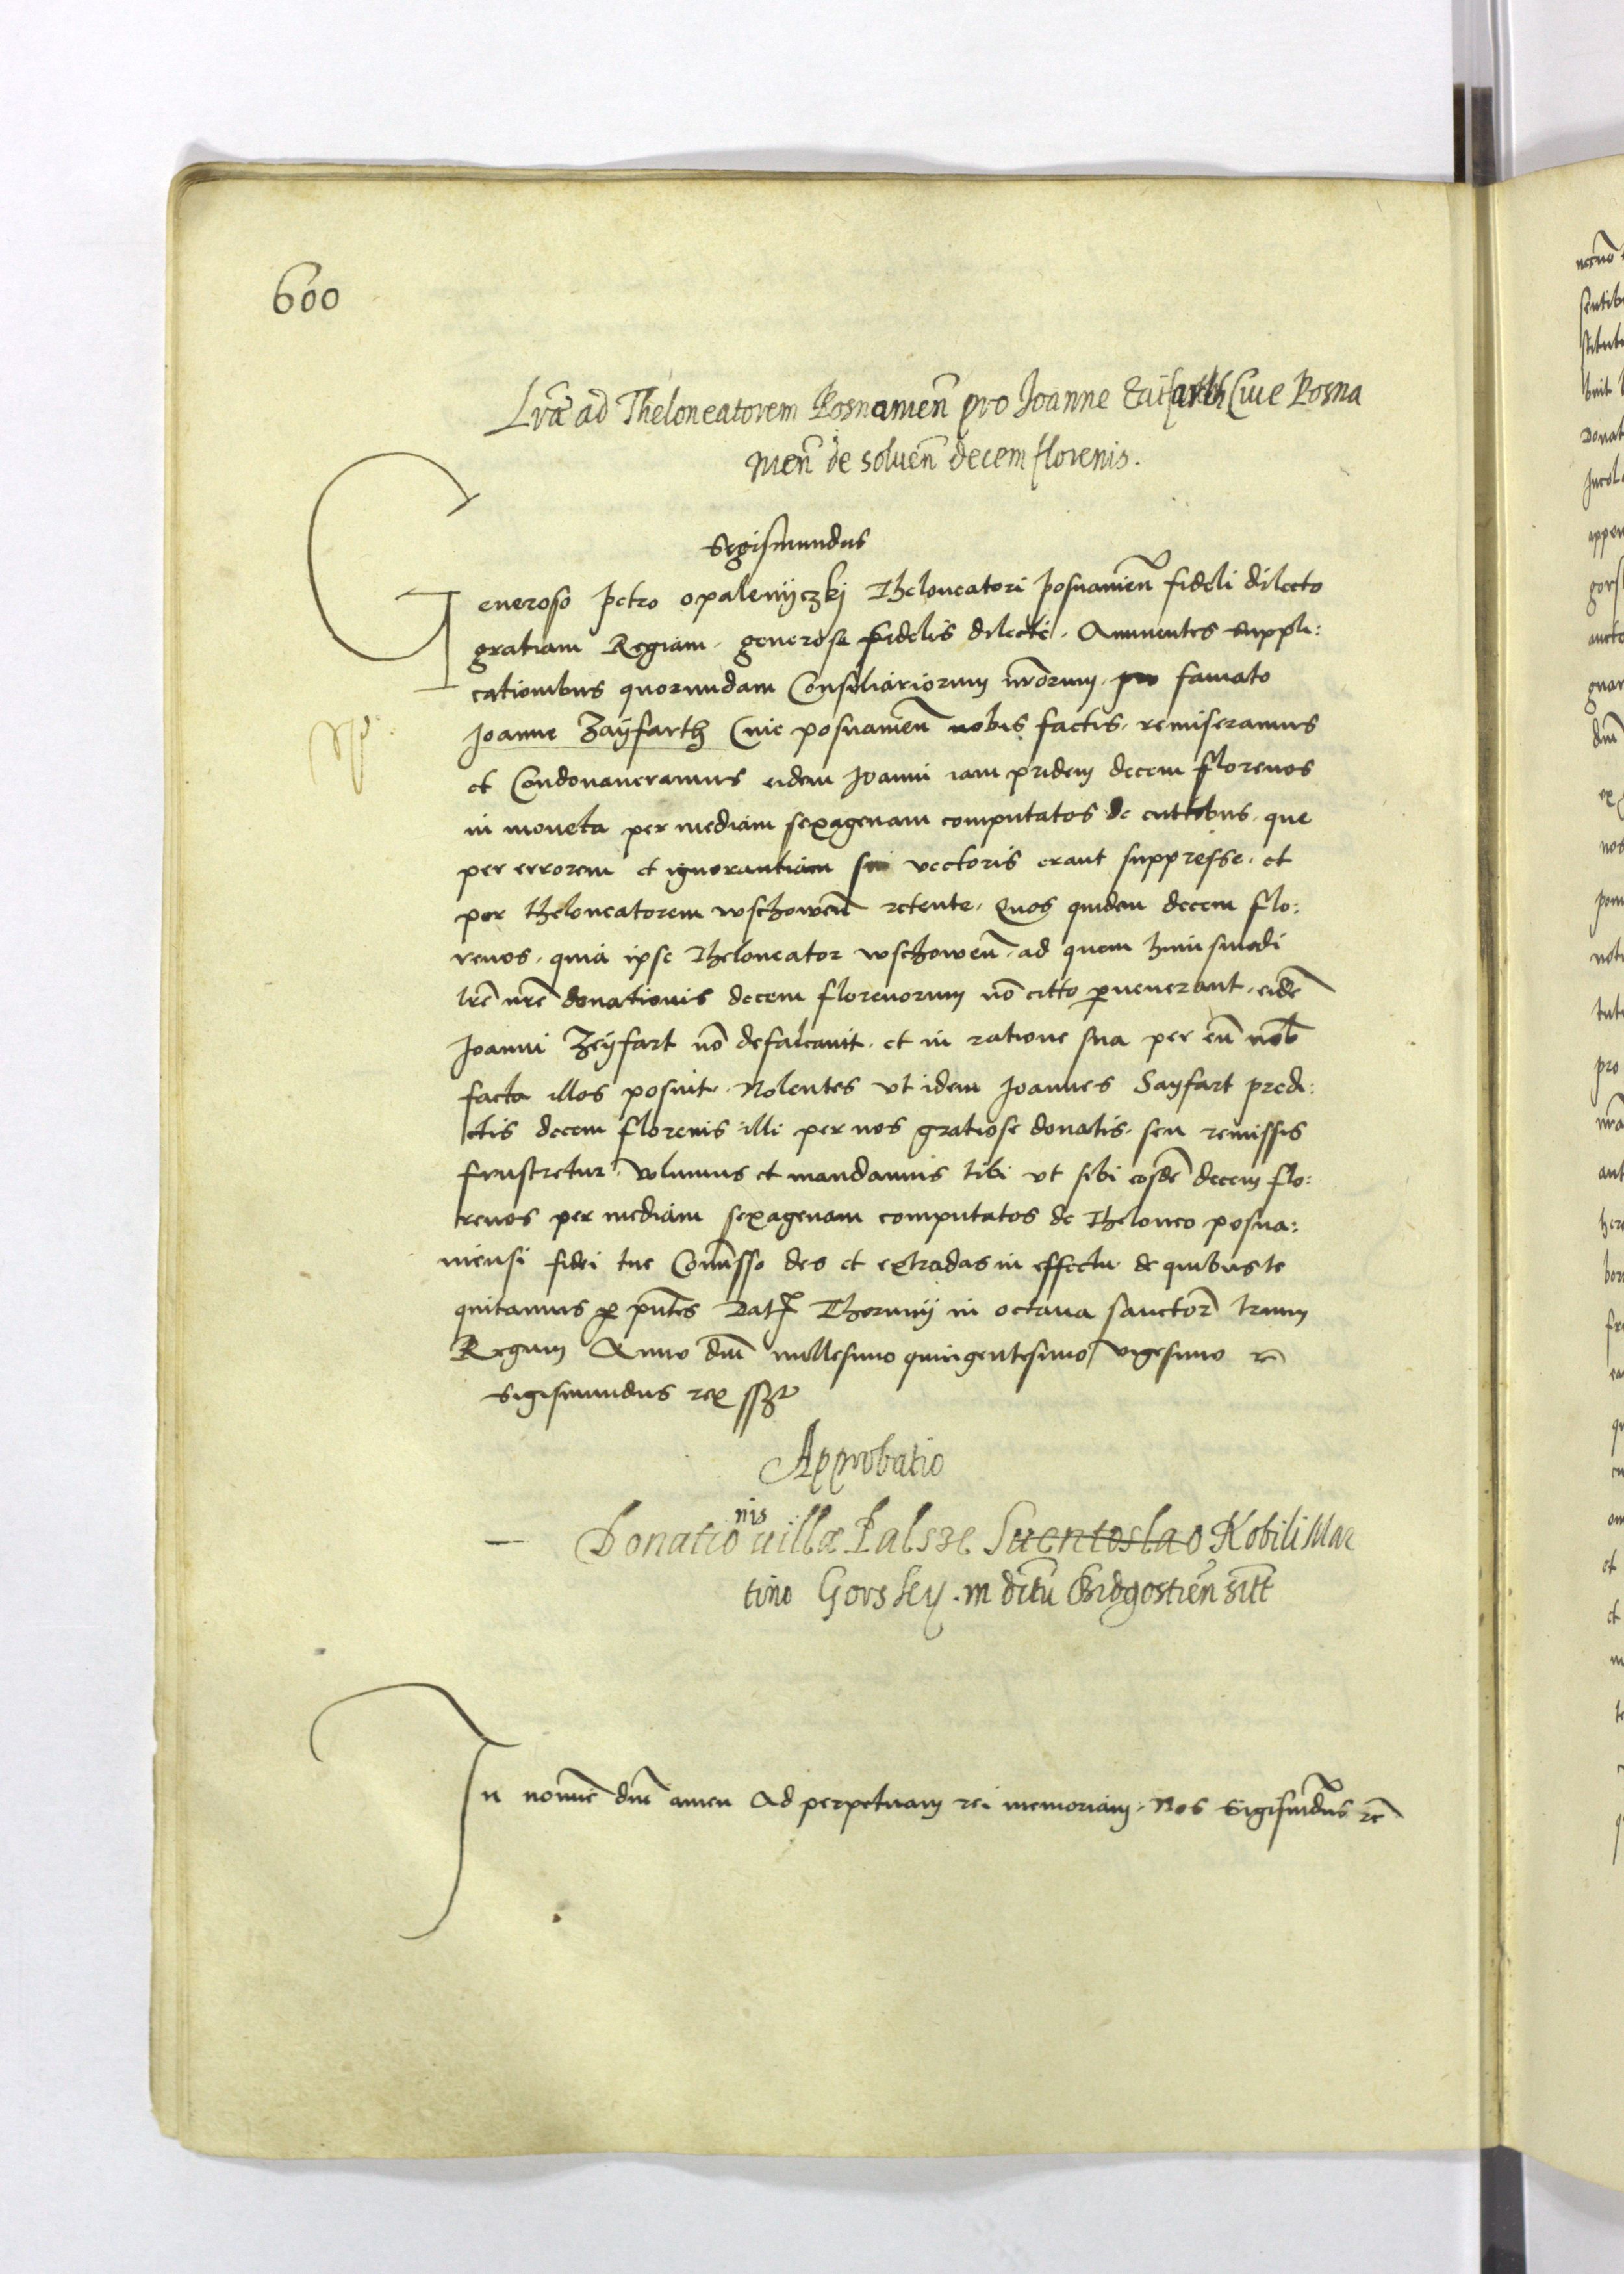 600
Lrae ad Theloneatorem Posnamen̄ pro Joanne Zaifarth Ciue Posna
men̄ de soluen̄ decem florenis.
Segismundus
Generoso petro opalenijczkj Theloneatori posnamien̄ fideli dilecto
gratiam Regiam. generose fidelis dilecte. Annuentes suppli:
cationibus quorundam Consiliariorum nr̄orum. pro famato
Joanne Zaÿfarth Ciue posnamien̄ nobis factis. remiseramus
et Condonaueramus eidem Joanni iam pridem decem florenos
in moneta per mediam sexagenam computatos de cuttibus. que
per errorem et ignorantiam sui vectoris erant suppresse. et
per theloneatorem wschowen̄ retente. Quos quidem decem flo:
renos. quia ipse Theloneator wschowen̄. ad quem huiusmodi
lr̄e nr̄e donationis decem florenorum nō citto peruenerant. eidē
Joanni Zeÿfart nō defalcauit. et in ratione sua per eū nob
facta illos posuit. Nolentes vt idem Joannes Sayfart predi:
ctis decem florenis illi per nos gratiose donatis. seu remissis
frustretur. volumus et mandamus tibi vt sibi eosdē decem flo:
renos per mediam sexagenam computatos de Theloneo posna:
niensi fidei tue Com̄isso des et extradas in effectu. de quibus te
quitamus p pn̄tes Dat Thorunij in octaua sanctor̄ trium
Regum Anno dn̄i millesimo quingentesimo vigesimo rē
Sigismundus rex sszt
Approbatio
— Donationis uillæ Palsze Suentoslao Nobili Mar
tino Gorskij. in dictū Bidgostien̄ sitt̄
In nomīe dn̄i amen Ad perpetuam rei memoriam. Nos Sigismūdus rē